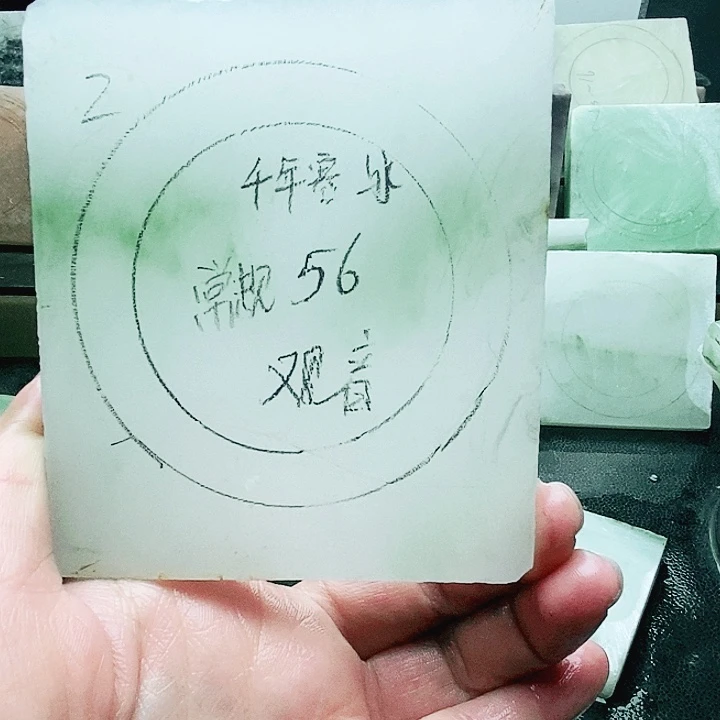 2
千年寒冰
常规 56
观音